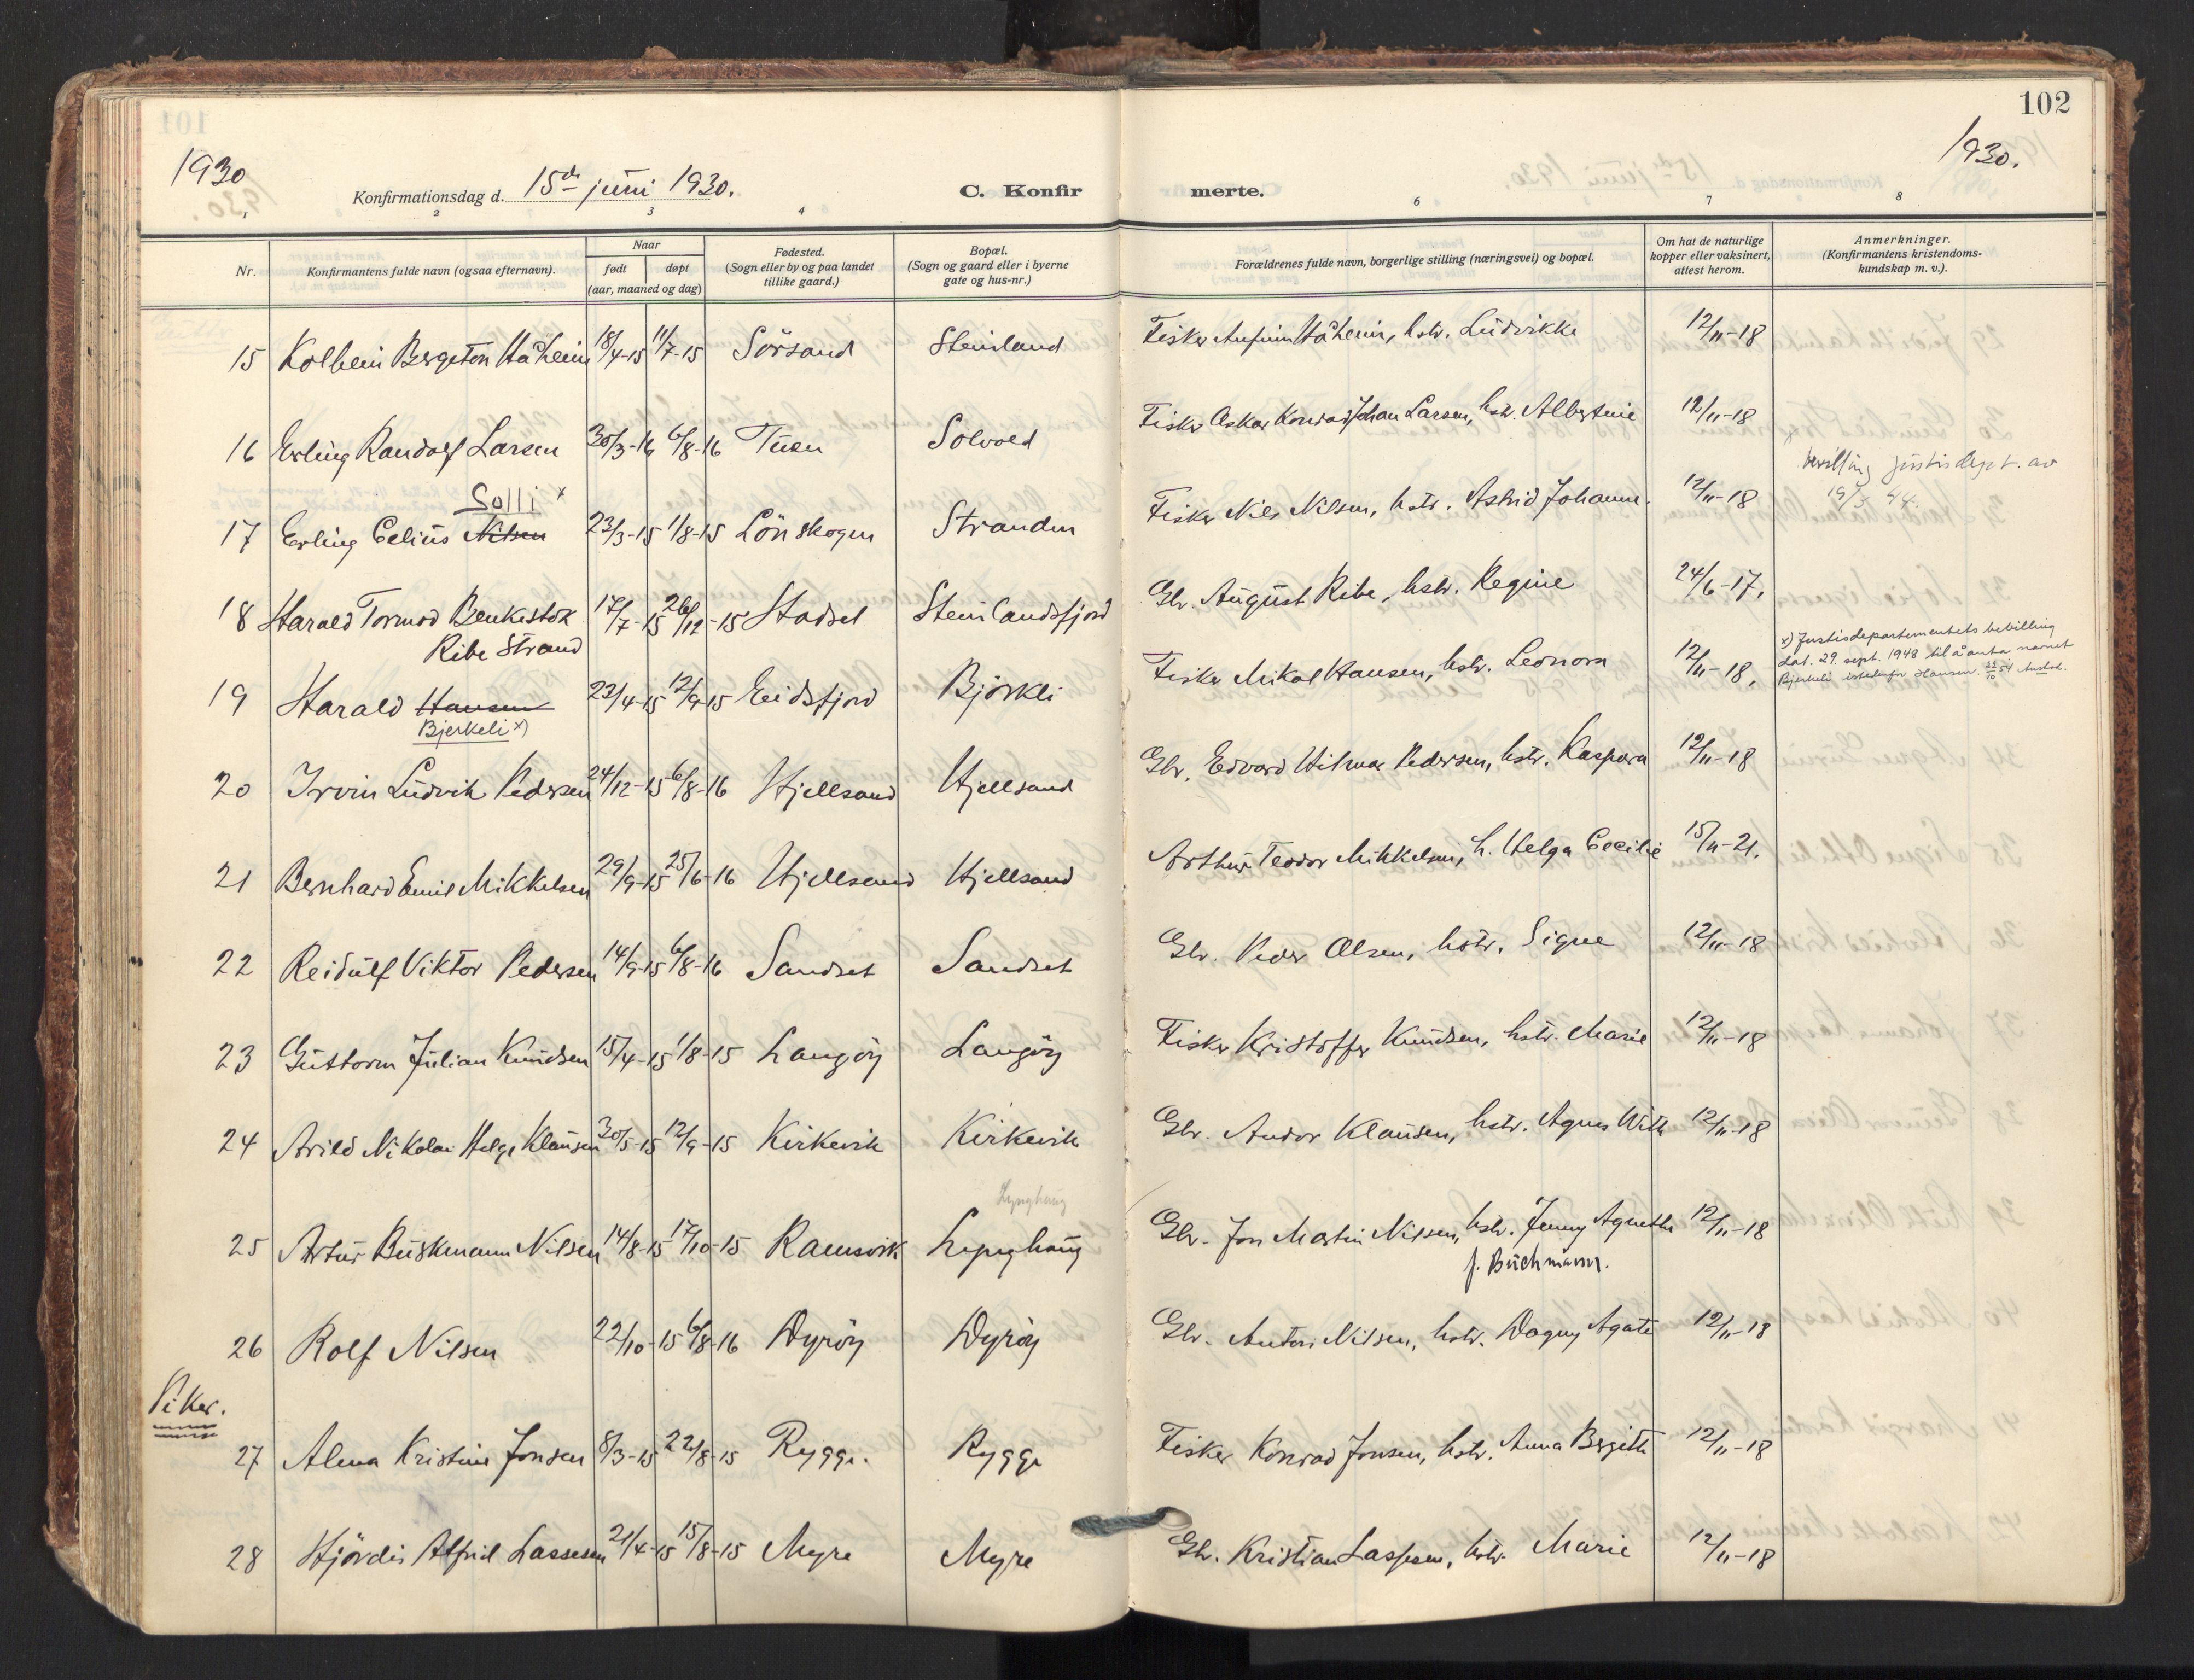 102
1930
1930.
Konfirmationsdag d. 15de juni 1930.
C. Konfir merte.
1 2 3 4 6 7 8
Nr.
Konfirmantens fulde navn (ogsaa efternavn).
Naar
født døpt
(aar, maaned og dag)
Fødested.
(Sogn eller by og paa landet
tillike gaard.)
Bopæl.
(Sogn og gaard eller i byerne
gate og hus-nr.)
Forældrenes fulde navn, borgerlige stilling (næringsvei) og bopæl.
Om hat de naturlige
kopper eller vaksinert,
attest herom.
Anmerkninger.
(Konfirmantens kristendoms-
kundskap m. v.).
15 Kolbein Bergeton Håheim 18/4-15 11/7-15 Sörsand Steinland Fisker Anfinn Håheim, hstr. Ludvikke 12/11-18
16 Erling Randolf Larsen 30/3-16 6/8-16 Tuen Solvold Fisker Oskar Konrad Johan Larsen, hstr. Albertine 12/11-18
bevilling justisdept. av
19/5 44.
Solli x
17 Erling Celius Nilsen 23/3-15 1/8-15 Lönskogen Stranden Fisker Nils Nilsen, hstr. Astrid Johanne. 12/11-18
18 Harald Tormod Benkestok 17/7-15 26/12-15 Stadset Steinlandsfjord Gbr. August Ribe, hstr. Regine 24/6-17.
Ribe Strand
19 Harald Hansen 23/4-15 12/9-15 Eidsfjord Björkli Fisker Mikal Hansen, hstr. Leonora 12/11-18.
Bjerkeli x)
x) Justisdepartementets bevilling
dat. 29. sept. 1948 til å anta navnet
Bjerkeli istedenfor Hansen.
20 Irvin Ludvik Pedersen 24/12-15 6/8-16 Hjellsand Hjellsand Gbr. Edvard Hilmar Pedersen, hstr. Kaspara 12/11-18
21 Bernhard Emil Mikkelsen 29/9-15 25/6-16 Hjellsand Hjellsand Arthur Teodor Mikkelsen, h. Helga Cecilie 15/11-21.
22 Reidulf Viktor Pedersen 14/9-15 6/8-16 Sandset Sandset Gbr. Peder Olsen, hstr. Signe 12/11-18
23 Guttorm Julian Knudsen 15/4-15 1/8-15 Langöy Langöy Fisker Kristoffer Knudsen, hstr. Marie 12/11-18
24 Arild Nikolai Helge Klausen 30/5-15 12/9-15 Kirkevik Kirkevik Gbr. Andor Klausen, hstr. Agnes With 12/11-18
Lynghaug
25 Artur Buskmann Nilsen 14/8-15 17/10-15 Ramsvik Lynghaug Gbr. Jon Martin Nilsen, hstr. Jenny Agnethe 12/11-18
f. Buchmann.
26 Rolf Nilsen 22/10-15 6/8-16 Dyröy Dyröy Gbr. Anton Nilsen, hstr. Dagny Agate 12/11-18
Piker.
27 Alma Kristine Jonsen 8/3-15 22/8-15 Rygge. Rygge Fisker Konrad Jonsen, hstr. Anna Bergith 12/11-18
28 Hjördis Alfrid Lassesen 21/4-15 15/8-15 Myre Myre Gbr. Kristian Lassesen, hstr. Marie 12/11-18